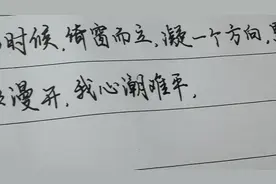 时候,倚窗而立,凝一个方向,
漫开,我心潮难平,